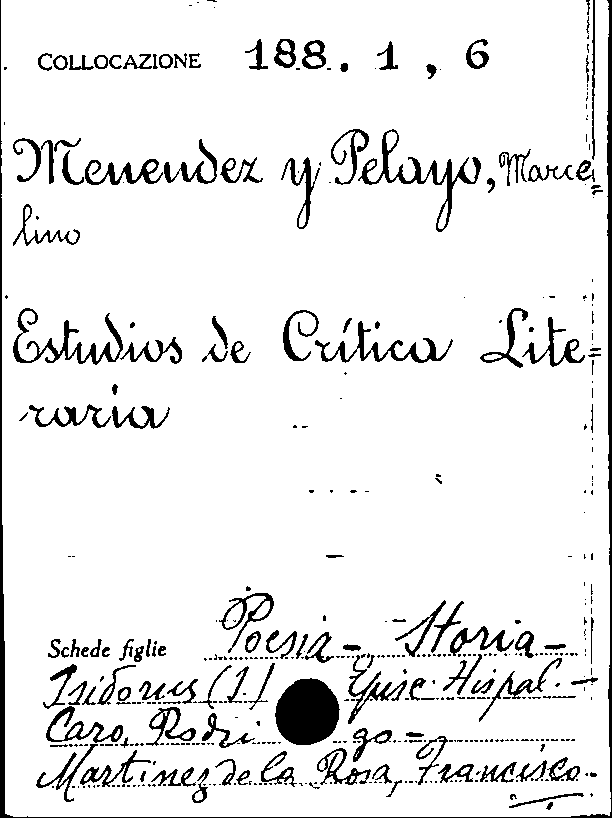 COLLOCAZIONE 188. 1, 6
Menendez y Pelayo, Marce=
lino
Estudios de Crítica Lite=
raria
Schede figlie Poesia - Storia -
Isidorus (S.) Episc. Hispal. -
Caro, Rodri go -
Martinez de la Rosa, Francisco -